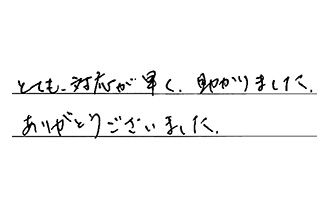 とても、対応が早く、助かりました。
ありがとうございました。